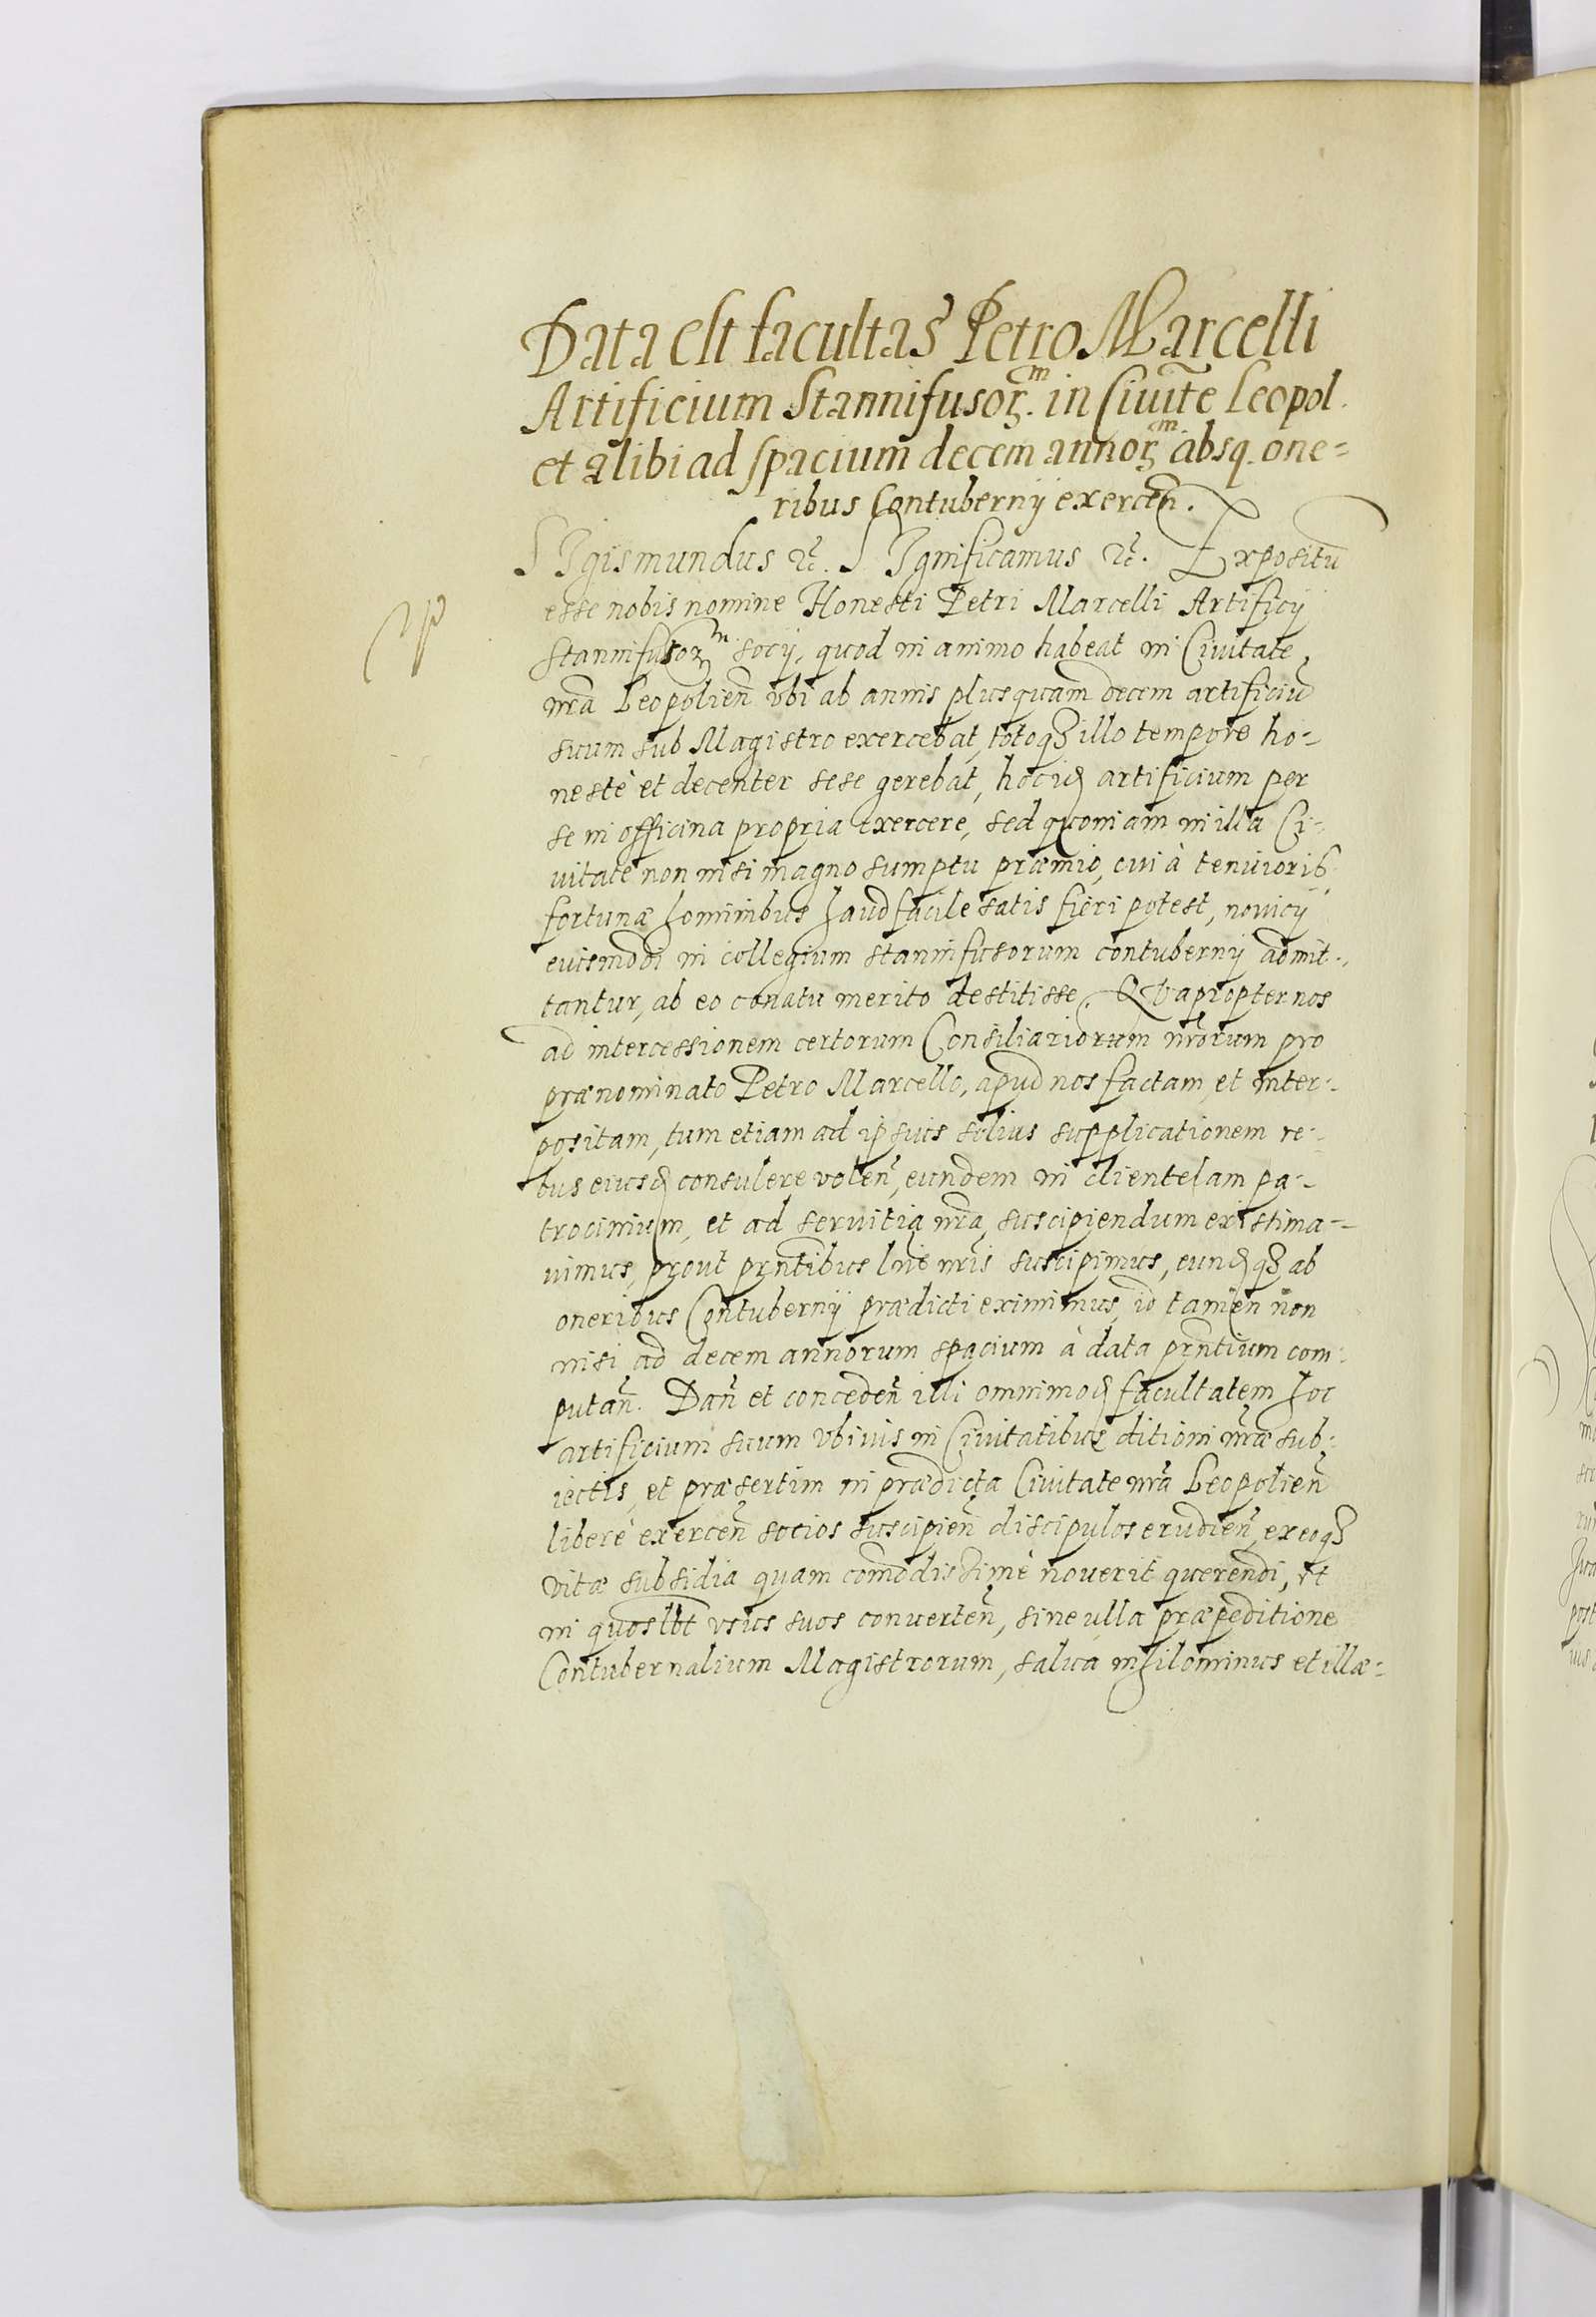 Data est facultas Petro Marcelli
Artificium Stannifusorꝝ. in Ciuite Leopol.
et alibi ad spacium decem annorꝝ absq. one=
ribus Contubernij exercen̄.
SIgismundus ꝛc̄. SIgnificamus ꝛc̄. Expositū
esse nobis nomine Honesti Petri Marcelli Artificij
Stannifusorꝝ socij, quod in animo habeat in Ciuitate
nr̄a Leopolien̄ vbi ab annis plusquam decem artificiū
suum sub Magistro exercebat, totoqꝫ illo tempore ho=
nestè et decenter sese gerebat, hoc id artificium per
se in officina propria exercere, sed quoniam in illa Ci=
uitate non nisi magno sumptu præmio, cui à tenuioris
fortunæ hominibus haud facile satis fieri potest, nouicij
euismodi in collegium stannifusorum contubernij admit=
tantur, ab eo conatu merito destitisse. QVapropter nos
ad intercessionem certorum Consiliariorum nr̄orum pro
prænominato Petro Marcello, apud nos factam, et inter=
positam, tum etiam ad ipsius solius supplicationem re=
bus eiusd consulere volen̄, eundem in clientelam pa=
trocinium, et ad seruitia nr̄a, suscipiendum existima=
uimus, prout prn̄tibus lr̄is nr̄is suscipimus, eundqꝫ ab
oneribus Contubernij prædicti eximimus, id tamen non
nisi ad decem annorum spacium à data prn̄tium com=
putan̄. Dan̄ et conceden̄ illi omnimod facultatem hoc
artificium suum vbiuis in Ciuitatibus ditioni nr̄æ sub=
iectis, et præsertim in prædicta Ciuitate nr̄a Leopolien̄
liberè exercen̄ socios suscipien̄ discipulos erudien̄, ex eoqꝫ
vitæ subsidia quam com̄odissimè nouerit querendi, et
in quoslbt vsus suos conuerten̄, sine ulla præpeditione
Contubernalium Magistrorum, salua nihilominus et illæ=